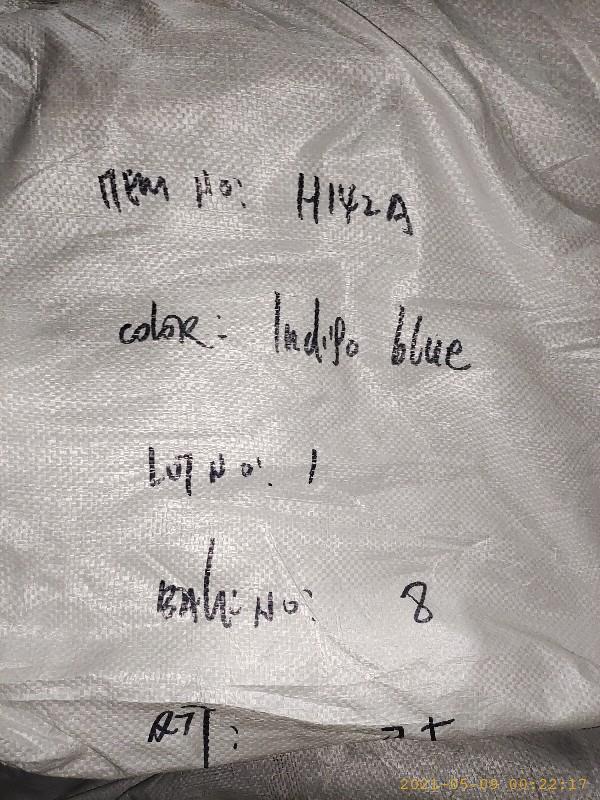 ITEM NO: H142A
color: Indigo blue
LOT NO: 1
BALE NO: 8
2021-05-09 00:22:17